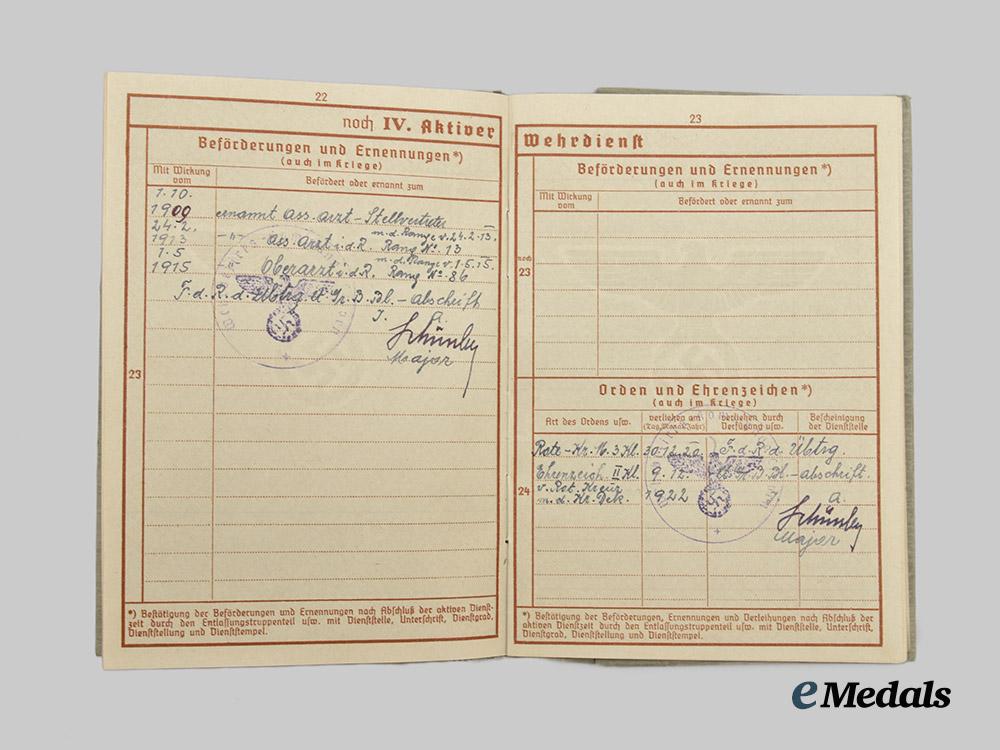 22
noch IV. Aktiver
Beförderungen und Ernennungen*)
(auch im Kriege)
Mit Wirkung vom
Befördert oder ernannt zum
1.10.
1909 ernannt Ass. Arzt - Stellvertreter
24.2. m.d. Range v. 24.2.13.
1913 -"- Ass. Arzt i.d.R. Rang No. 13
1.5 m.d. Range v. 1.5.15.
1915 Oberarzt i.d.R. Rang No. 86
F.d.R.d. Übtrg.
B. Bl. - abschrift
J. A.
Major
23
*) Bestätigung der Beförderungen und Ernennungen nach Abschluß der aktiven Dienst-
zeit durch den Entlassungstruppenteil usw. mit Dienststelle, Unterschrift, Dienstgrad,
Dienststellung und Dienststempel.
23
Wehrdienst
Beförderungen und Ernennungen*)
(auch im Kriege)
Mit Wirkung vom
Befördert oder ernannt zum
noch
23
Orden und Ehrenzeichen*)
(auch im Kriege)
Art des Ordens usw.
verliehen am
(Tag, Monat, Jahr)
verliehen durch
Verfügung usw.
Bescheinigung
der Dienststelle
Rote-Kr. M. 3 Kl. 30.12.20. F.d.R.d. Übtrg.
Ehrenzeich. II Kl. 9.12. B. Bl. - abschrift.
v. Rot. Kreuz
m.d. Kr. Dek. 1922 J. A.
24
Major
*) Bestätigung der Beförderungen, Ernennungen und Verleihungen nach Abschluß der
aktiven Dienstzeit durch den Entlassungstruppenteil usw. mit Dienststelle, Unterschrift,
Dienstgrad, Dienststellung und Dienststempel.
eMedals